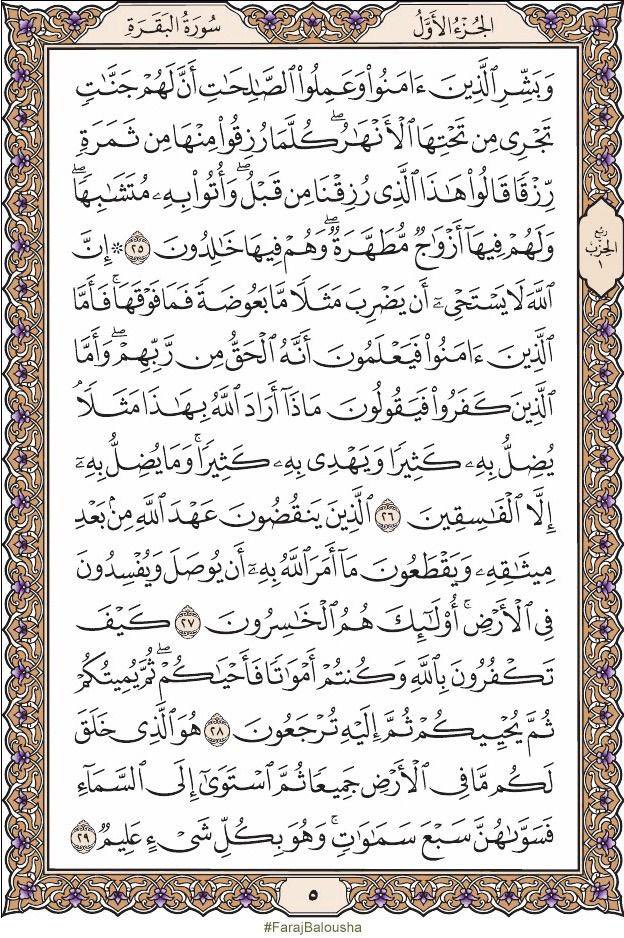 الجُزْءُ الأَوَّلُ
سُورَةُ البَقَرَةِ
وَبَشِّرِ ٱلَّذِينَ ءَامَنُوا۟ وَعَمِلُوا۟ ٱلصَّـٰلِحَـٰتِ أَنَّ لَهُمْ جَنَّـٰتٍ
تَجْرِى مِن تَحْتِهَا ٱلْأَنْهَـٰرُ ۖ كُلَّمَا رُزِقُوا۟ مِنْهَا مِن ثَمَرَةٍ
رِّزْقًا قَالُوا۟ هَـٰذَا ٱلَّذِى رُزِقْنَا مِن قَبْلُ ۖ وَأُتُوا۟ بِهِۦ مُتَشَـٰبِهًا ۖ
وَلَهُمْ فِيهَآ أَزْوَٰجٌ مُّطَهَّرَةٌ ۖ وَهُمْ فِيهَا خَـٰلِدُونَ ٢٥ ۞ إِنَّ
ٱللَّهَ لَا يَسْتَحْىِۦٓ أَن يَضْرِبَ مَثَلًا مَّا بَعُوضَةً فَمَا فَوْقَهَا ۚ فَأَمَّا
ٱلَّذِينَ ءَامَنُوا۟ فَيَعْلَمُونَ أَنَّهُ ٱلْحَقُّ مِن رَّبِّهِمْ ۖ وَأَمَّا
ٱلَّذِينَ كَفَرُوا۟ فَيَقُولُونَ مَاذَآ أَرَادَ ٱللَّهُ بِهَـٰذَا مَثَلًا ۘ
يُضِلُّ بِهِۦ كَثِيرًا وَيَهْدِى بِهِۦ كَثِيرًا ۚ وَمَا يُضِلُّ بِهِۦٓ
إِلَّا ٱلْفَـٰسِقِينَ ٢٦ ٱلَّذِينَ يَنقُضُونَ عَهْدَ ٱللَّهِ مِنۢ بَعْدِ
مِيثَـٰقِهِۦ وَيَقْطَعُونَ مَآ أَمَرَ ٱللَّهُ بِهِۦٓ أَن يُوصَلَ وَيُفْسِدُونَ
فِى ٱلْأَرْضِ ۚ أُو۟لَـٰٓئِكَ هُمُ ٱلْخَـٰسِرُونَ ٢٧ كَيْفَ
تَكْفُرُونَ بِٱللَّهِ وَكُنتُمْ أَمْوَٰتًا فَأَحْيَـٰكُمْ ۖ ثُمَّ يُمِيتُكُمْ
ثُمَّ يُحْيِيكُمْ ثُمَّ إِلَيْهِ تُرْجَعُونَ ٢٨ هُوَ ٱلَّذِى خَلَقَ
لَكُم مَّا فِى ٱلْأَرْضِ جَمِيعًا ثُمَّ ٱسْتَوَىٰٓ إِلَى ٱلسَّمَآءِ
فَسَوَّىٰهُنَّ سَبْعَ سَمَـٰوَٰتٍ ۚ وَهُوَ بِكُلِّ شَىْءٍ عَلِيمٌ ٢٩
ربع
الحزب
١
٥
#FarajBalousha